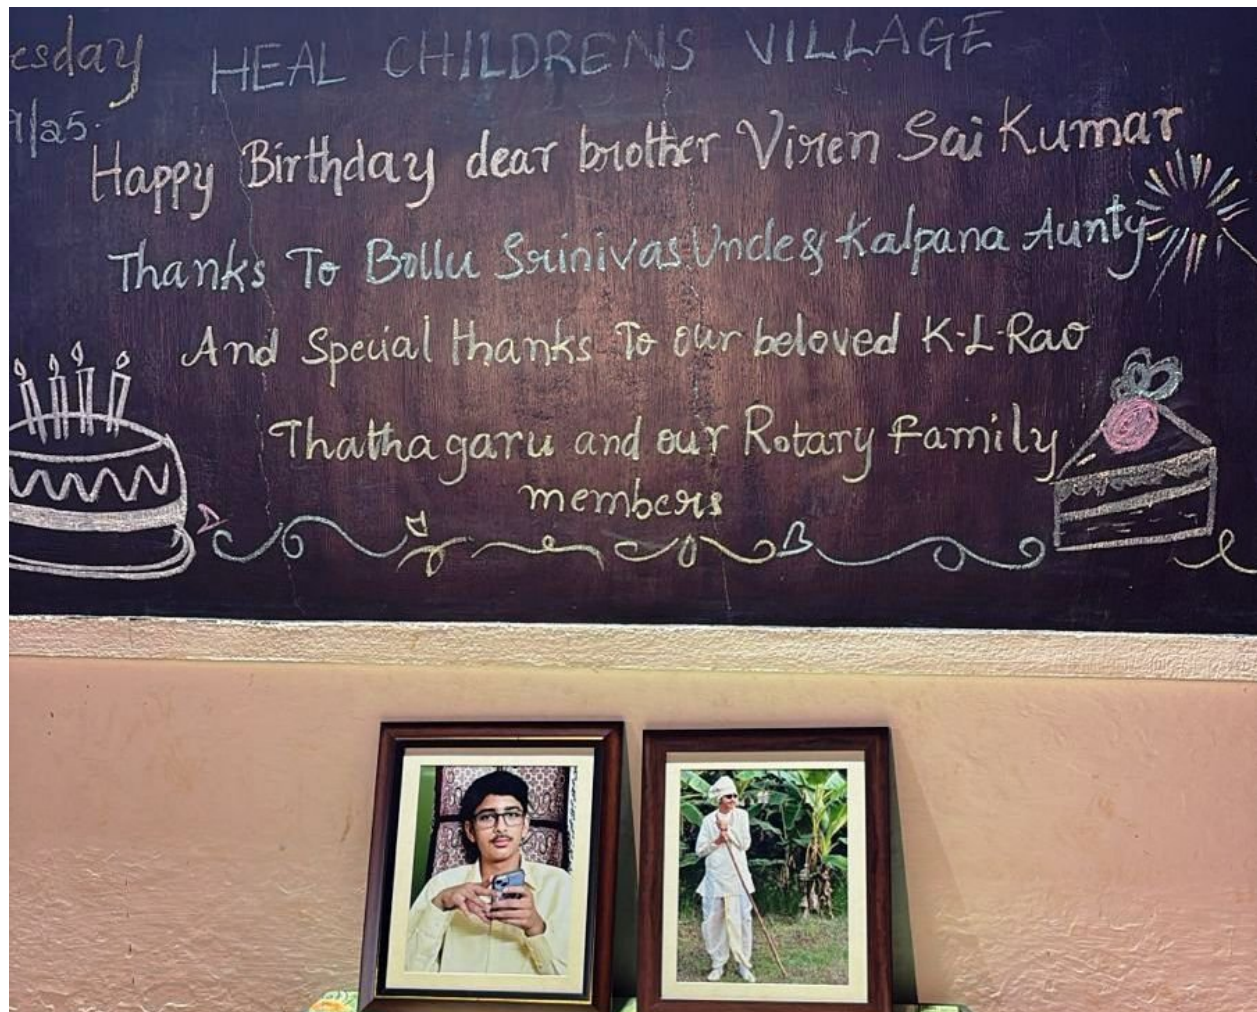 esday
HEAL CHILDRENS VILLAGE
/25.
Happy Birthday dear brother Viren Sai Kumar
Thanks To Bollu Srinivas Uncle & Kalpana Aunty
And Special thanks To our beloved K.L.Rao
Thathagaru and our Rotary Family
members